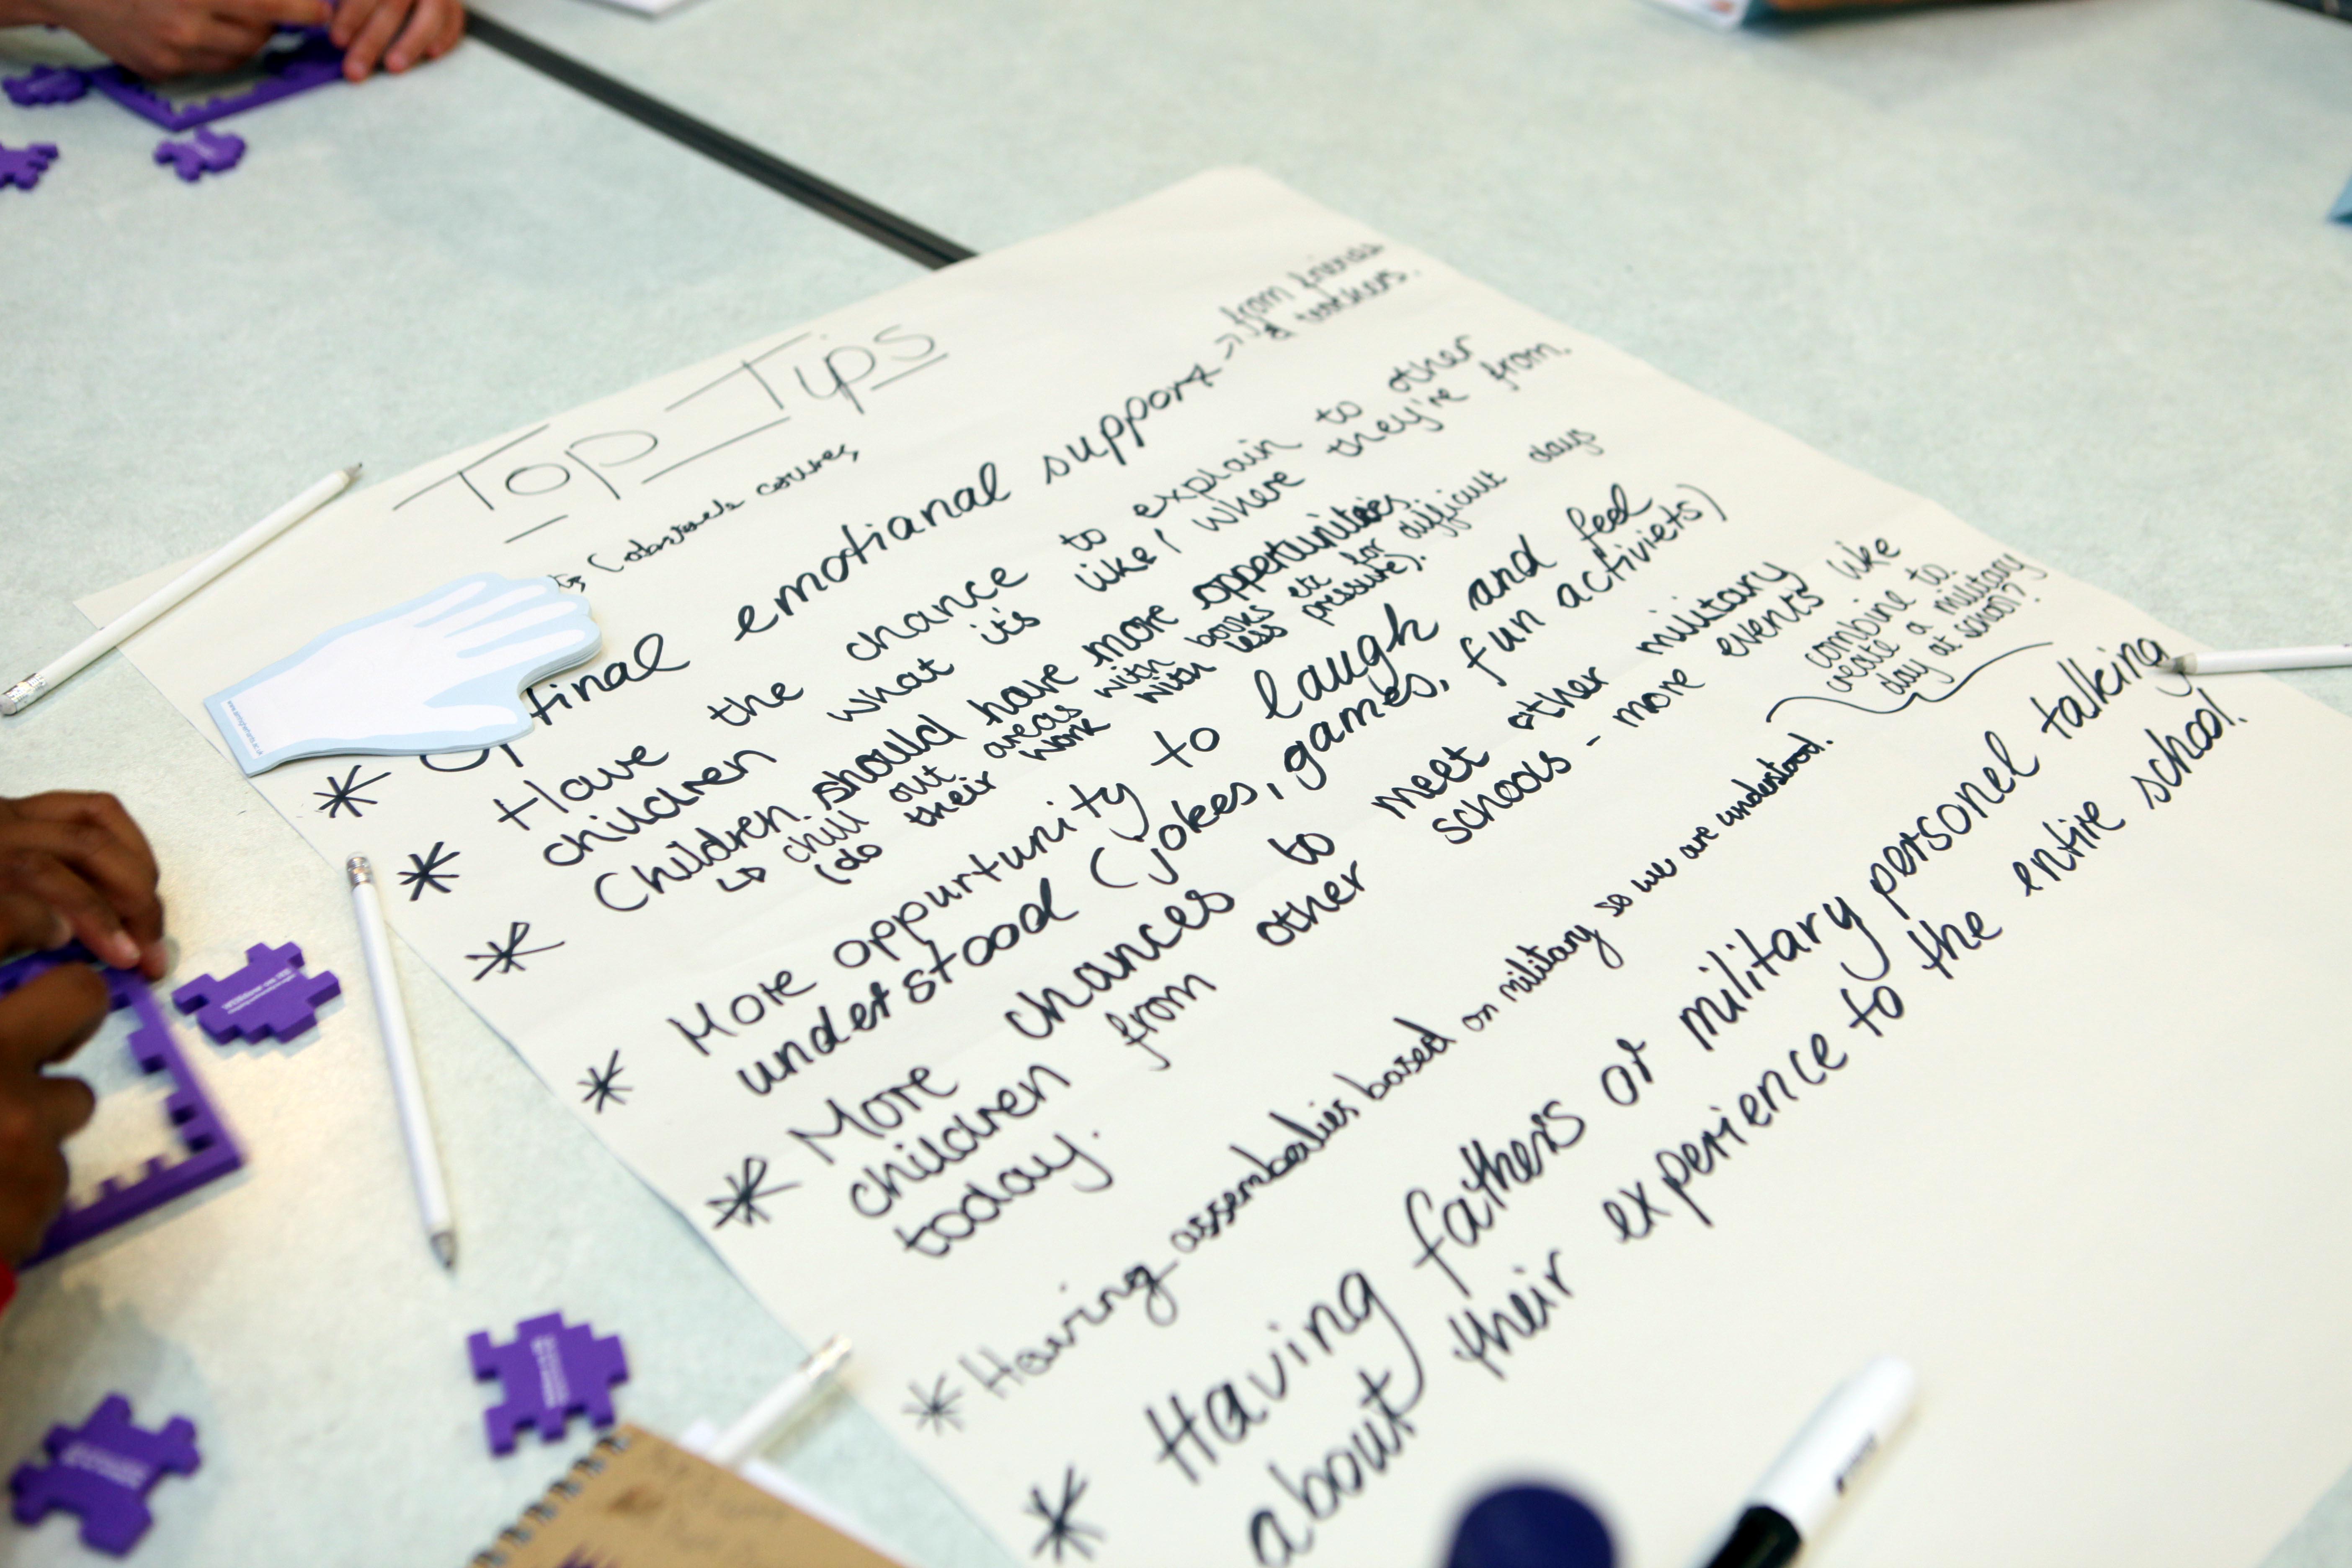 Top Tips
(obstacle courses,
Optional emotional support → from friends
& teachers.
* Have the chance to explain to other
children what it's like / where they're from.
* Children should have more oppertunities
↳ chill out areas with books etc for difficult days
(do their work with less pressure).
* More oppurtunity to laugh and feel
understood (jokes, games, fun activiets)
* More chances to meet other military
children from other schools - more events like
today.
combine to
create a military
day at school?
* Having assembalies based on military so we are understood.
* Having fathers or military personel talking
about their experience to the entire school.